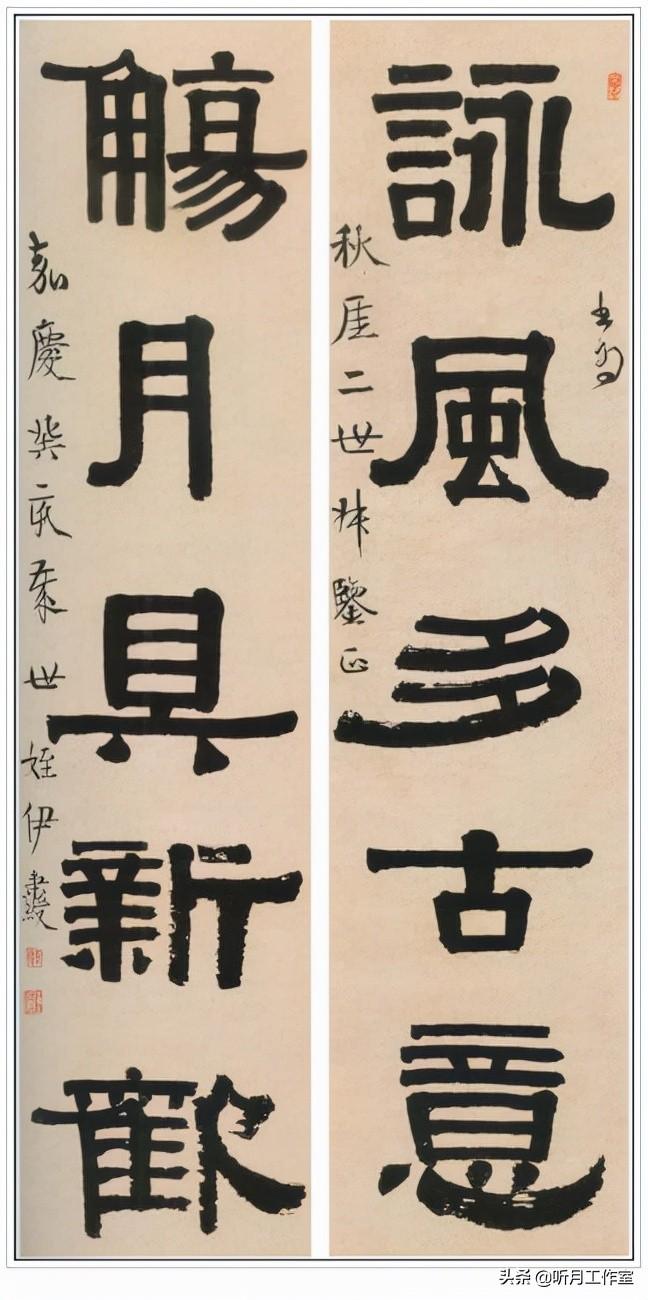 書為
詠風多古意
秋厓二世叔鑒正
觴月具新歡
嘉慶癸亥歲世姪伊秉綬
头条 @听月工作室